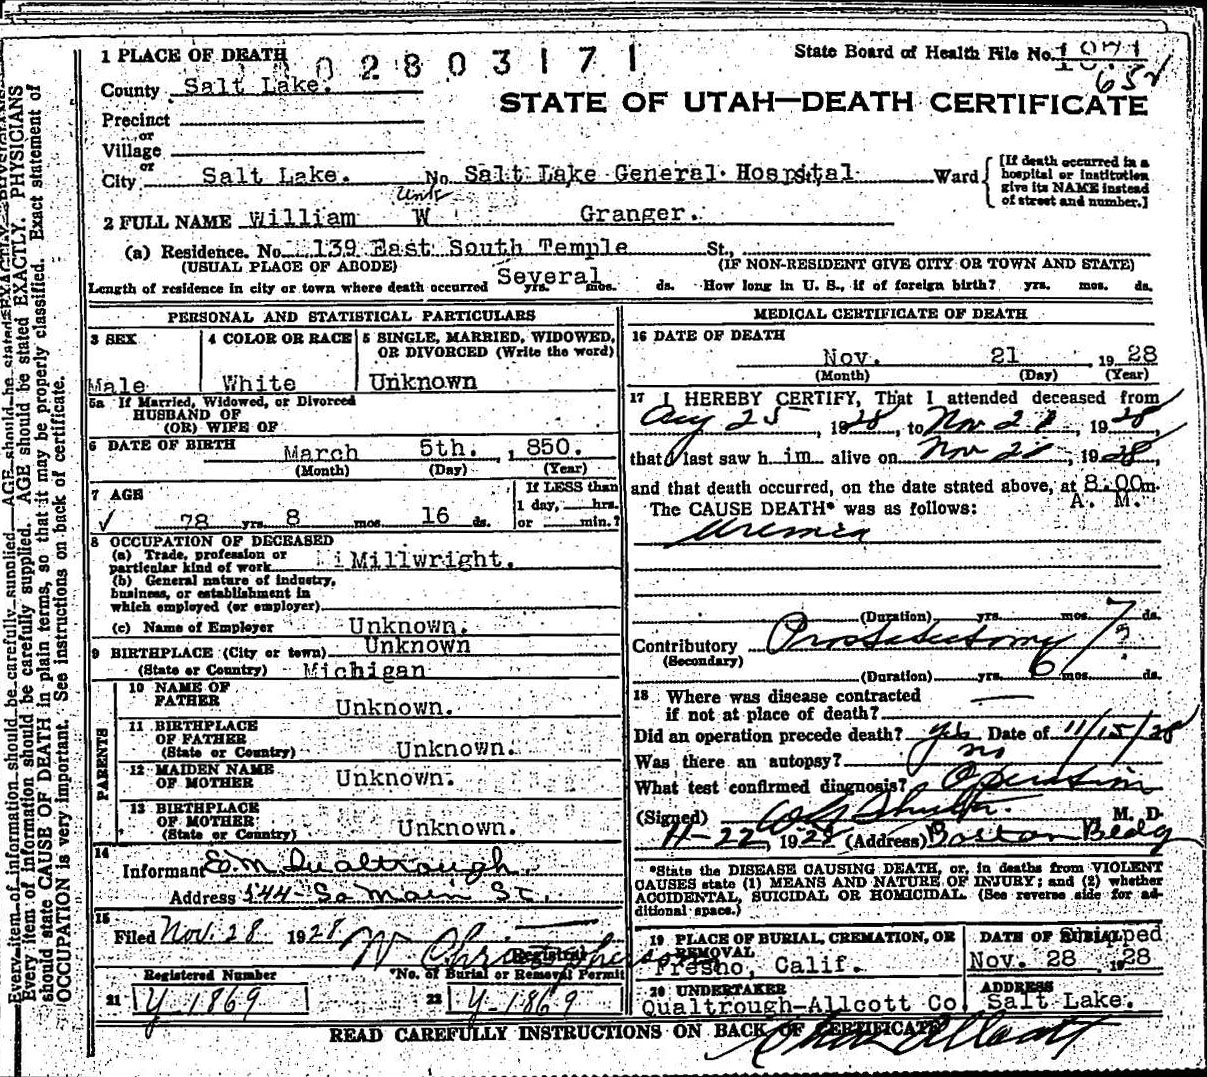 1 PLACE OF DEATH
02803171
State Board of Health File No. 1871
652
County Salt Lake.
STATE OF UTAH—DEATH CERTIFICATE
Precinct
or
Village
or
City Salt Lake. No Salt Lake General Hospital Ward
[If death occurred in a
hospital or institution
give its NAME instead
of street and number.]
Unk
2 FULL NAME William W Granger.
(a) Residence. No. 139 East South Temple St.,
(USUAL PLACE OF ABODE) (IF NON-RESIDENT GIVE CITY OR TOWN AND STATE)
Length of residence in city or town where death occurred Several yrs. mos. ds. How long in U. S., if of foreign birth? yrs. mos. ds.
PERSONAL AND STATISTICAL PARTICULARS
3 SEX
Male
4 COLOR OR RACE
White
5 SINGLE, MARRIED, WIDOWED,
OR DIVORCED (Write the word)
Unknown
5a If Married, Widowed, or Divorced
HUSBAND OF
(OR) WIFE OF
6 DATE OF BIRTH March 5th. , 1 850.
(Month) (Day) (Year)
7 AGE
✓ 78 yrs. 8 mos. 16 ds.
If LESS than
1 day, hrs.
or min.?
8 OCCUPATION OF DECEASED
(a) Trade, profession or
particular kind of work Millwright.
(b) General nature of industry,
business, or establishment in
which employed (or employer)
(c) Name of Employer Unknown.
9 BIRTHPLACE (City or town) Unknown
(State or Country) Michigan
PARENTS
10 NAME OF
FATHER Unknown.
11 BIRTHPLACE
OF FATHER
(State or Country) Unknown.
12 MAIDEN NAME
OF MOTHER Unknown.
13 BIRTHPLACE
OF MOTHER
(State or Country) Unknown.
14
Informant E.M. Qualtrough.
Address 544 So Main St.
15
Filed Nov. 28 1928. W Christopherson
Registrar
Registered Number *No. of Burial or Removal Permit
21 Y-1869 22 Y-1869
MEDICAL CERTIFICATE OF DEATH
16 DATE OF DEATH
Nov. 21 19 28
(Month) (Day) (Year)
17 I HEREBY CERTIFY, That I attended deceased from
Aug 25 , 1928, to Nov 21 , 1928
that I last saw h im alive on Nov 21 , 1928,
and that death occurred, on the date stated above, at 8:00 m.
A. M.
The CAUSE DEATH* was as follows:
Uremia
(Duration) yrs. mos. 7 ds.
Contributory Prostatectomy
(Secondary)
(Duration) yrs. 6 mos. ds.
18 Where was disease contracted
if not at place of death?
Did an operation precede death? yes Date of 11/15/28
Was there an autopsy? no
What test confirmed diagnosis? Operation
(Signed) M. D.
11-22, 1928 (Address) Boston Bldg
*State the DISEASE CAUSING DEATH, or, in deaths from VIOLENT
CAUSES state (1) MEANS AND NATURE OF INJURY; and (2) whether
ACCIDENTAL, SUICIDAL OR HOMICIDAL. (See reverse side for ad-
ditional space.)
19 PLACE OF BURIAL, CREMATION, OR
REMOVAL
Fresno, Calif.
DATE OF BURIAL Shipped
Nov. 28 19 28
20 UNDERTAKER
Qualtrough-Allcott Co.
ADDRESS
Salt Lake.
READ CAREFULLY INSTRUCTIONS ON BACK OF CERTIFICATE
Every item of information should be carefully supplied. AGE should be stated EXACTLY. PHYSICIANS
should state CAUSE OF DEATH in plain terms, so that it may be properly classified. Exact statement of
OCCUPATION is very important. See instructions on back of certificate.